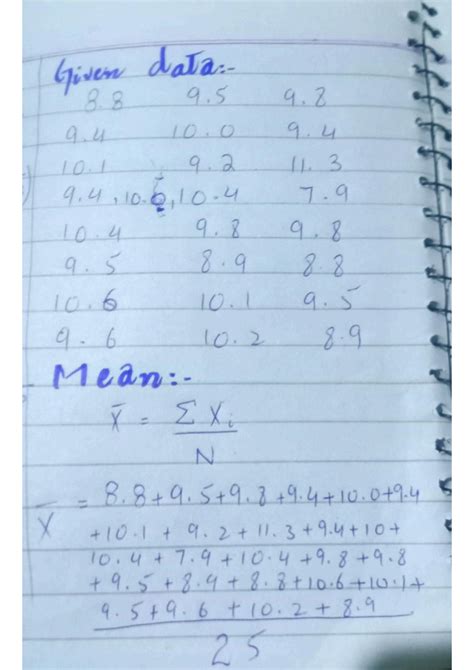 Given data:-
8.8 9.5 9.8
9.4 10.0 9.4
10.1 9.2 11.3
9.4, 10.6, 10.4 7.9
10.4 9.8 9.8
9.5 8.9 8.8
10.6 10.1 9.5
9.6 10.2 8.9
Mean:-
X̄ = Σ Xi
N
X̄ = 8.8+9.5+9.8+9.4+10.0+9.4
+10.1 + 9.2 + 11.3 + 9.4 + 10 +
10.4 + 7.9 + 10.4 + 9.8 + 9.8
+ 9.5 + 8.9 + 8.8 + 10.6 + 10.1 +
9.5 + 9.6 + 10.2 + 8.9
25